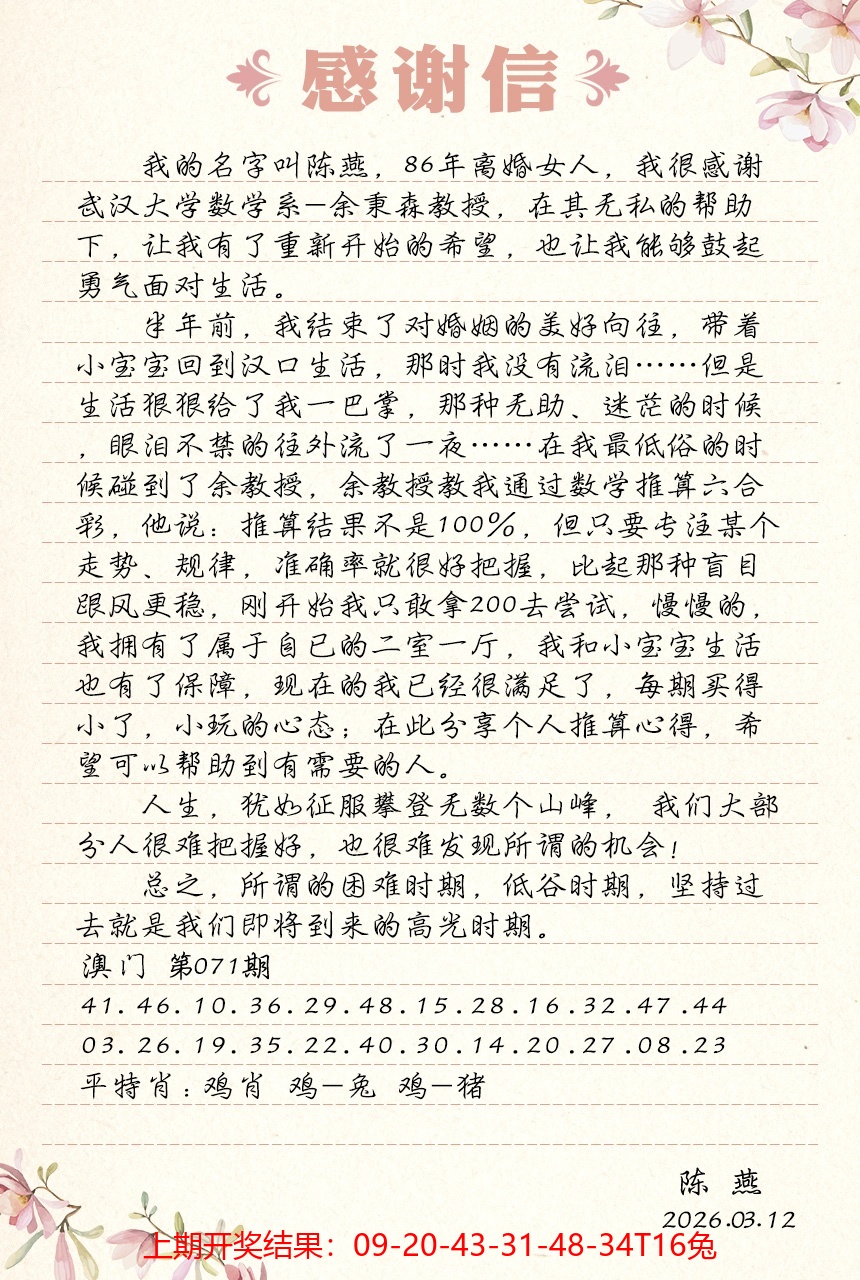 感谢信
我的名字叫陈燕，86年离婚女人，我很感谢
武汉大学数学系—余秉森教授，在其无私的帮助
下，让我有了重新开始的希望，也让我能够鼓起
勇气面对生活。
半年前，我结束了对婚姻的美好向往，带着
小宝宝回到汉口生活，那时我没有流泪……但是
生活狠狠给了我一巴掌，那种无助、迷茫的时候
，眼泪不禁的往外流了一夜……在我最低俗的时
候碰到了余教授，余教授教我通过数学推算六合
彩，他说：推算结果不是100%，但只要专注某个
走势、规律，准确率就很好把握，比起那种盲目
跟风更稳，刚开始我只敢拿200去尝试，慢慢的，
我拥有了属于自己的二室一厅，我和小宝宝生活
也有了保障，现在的我已经很满足了，每期买得
小了，小玩的心态；在此分享个人推算心得，希
望可以帮助到有需要的人。
人生，犹如征服攀登无数个山峰， 我们大部
分人很难把握好，也很难发现所谓的机会！
总之，所谓的困难时期，低谷时期，坚持过
去就是我们即将到来的高光时期。
澳门 第071期
41.46.10.36.29.48.15.28.16.32.47.44
03.26.19.35.22.40.30.14.20.27.08.23
平特肖：鸡肖 鸡—兔 鸡—猪
陈 燕
2026.03.12
上期开奖结果：09-20-43-31-48-34T16兔